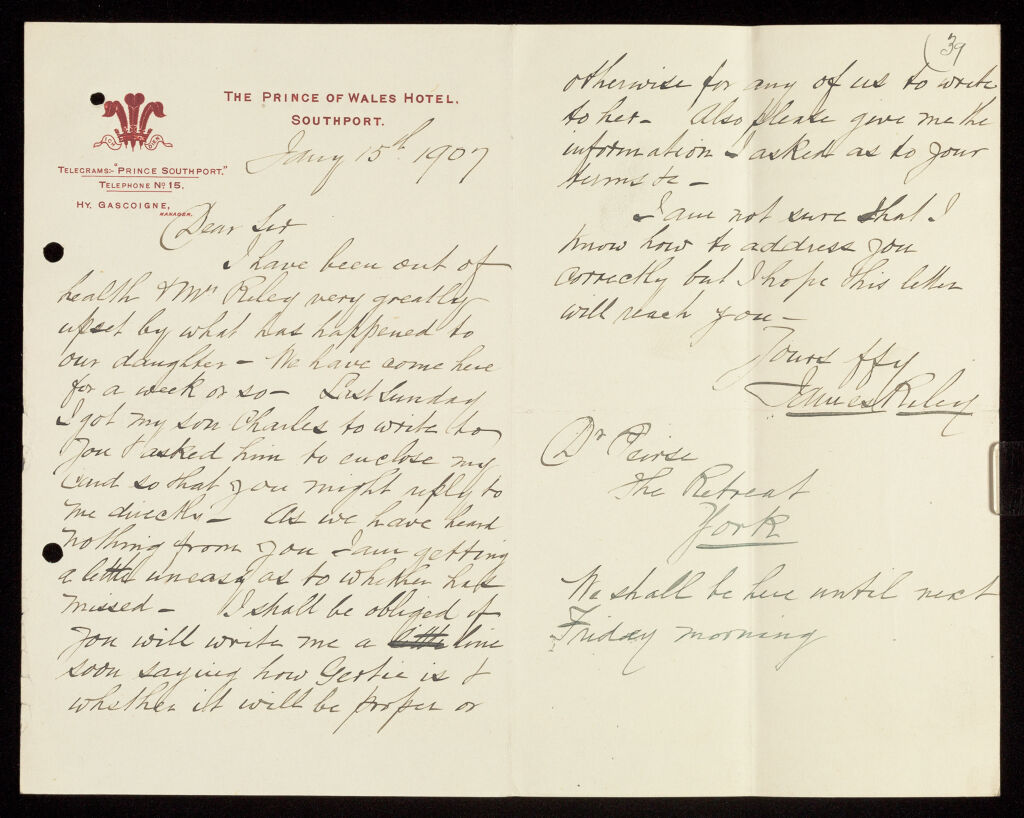 THE PRINCE OF WALES HOTEL,
SOUTHPORT.
TELEGRAMS:- "PRINCE SOUTHPORT."
TELEPHONE No 15.
HY. GASCOIGNE,
MANAGER.
Jany 15th 1907
Dear Sir
I have been out of
health & Mrs Riley very greatly
upset by what has happened to
our daughter - We have come here
for a week or so - Last Sunday
I got my son Charles to write to
you & asked him to enclose my
card so that you might reply to
me directly - As we have heard
nothing from you I am getting
a little uneasy as to whether has
missed - I shall be obliged if
you will write me a little line
soon saying how Gertie is &
whether it will be proper or
39
otherwise for any of us to write
to her - Also please give me the
information I asked as to your
terms &c -
I am not sure that I
know how to address you
correctly but I hope this letter
will reach you -
Yours ffy
James Riley
Dr Peirse
The Retreat
York
We shall be here until next
Friday morning